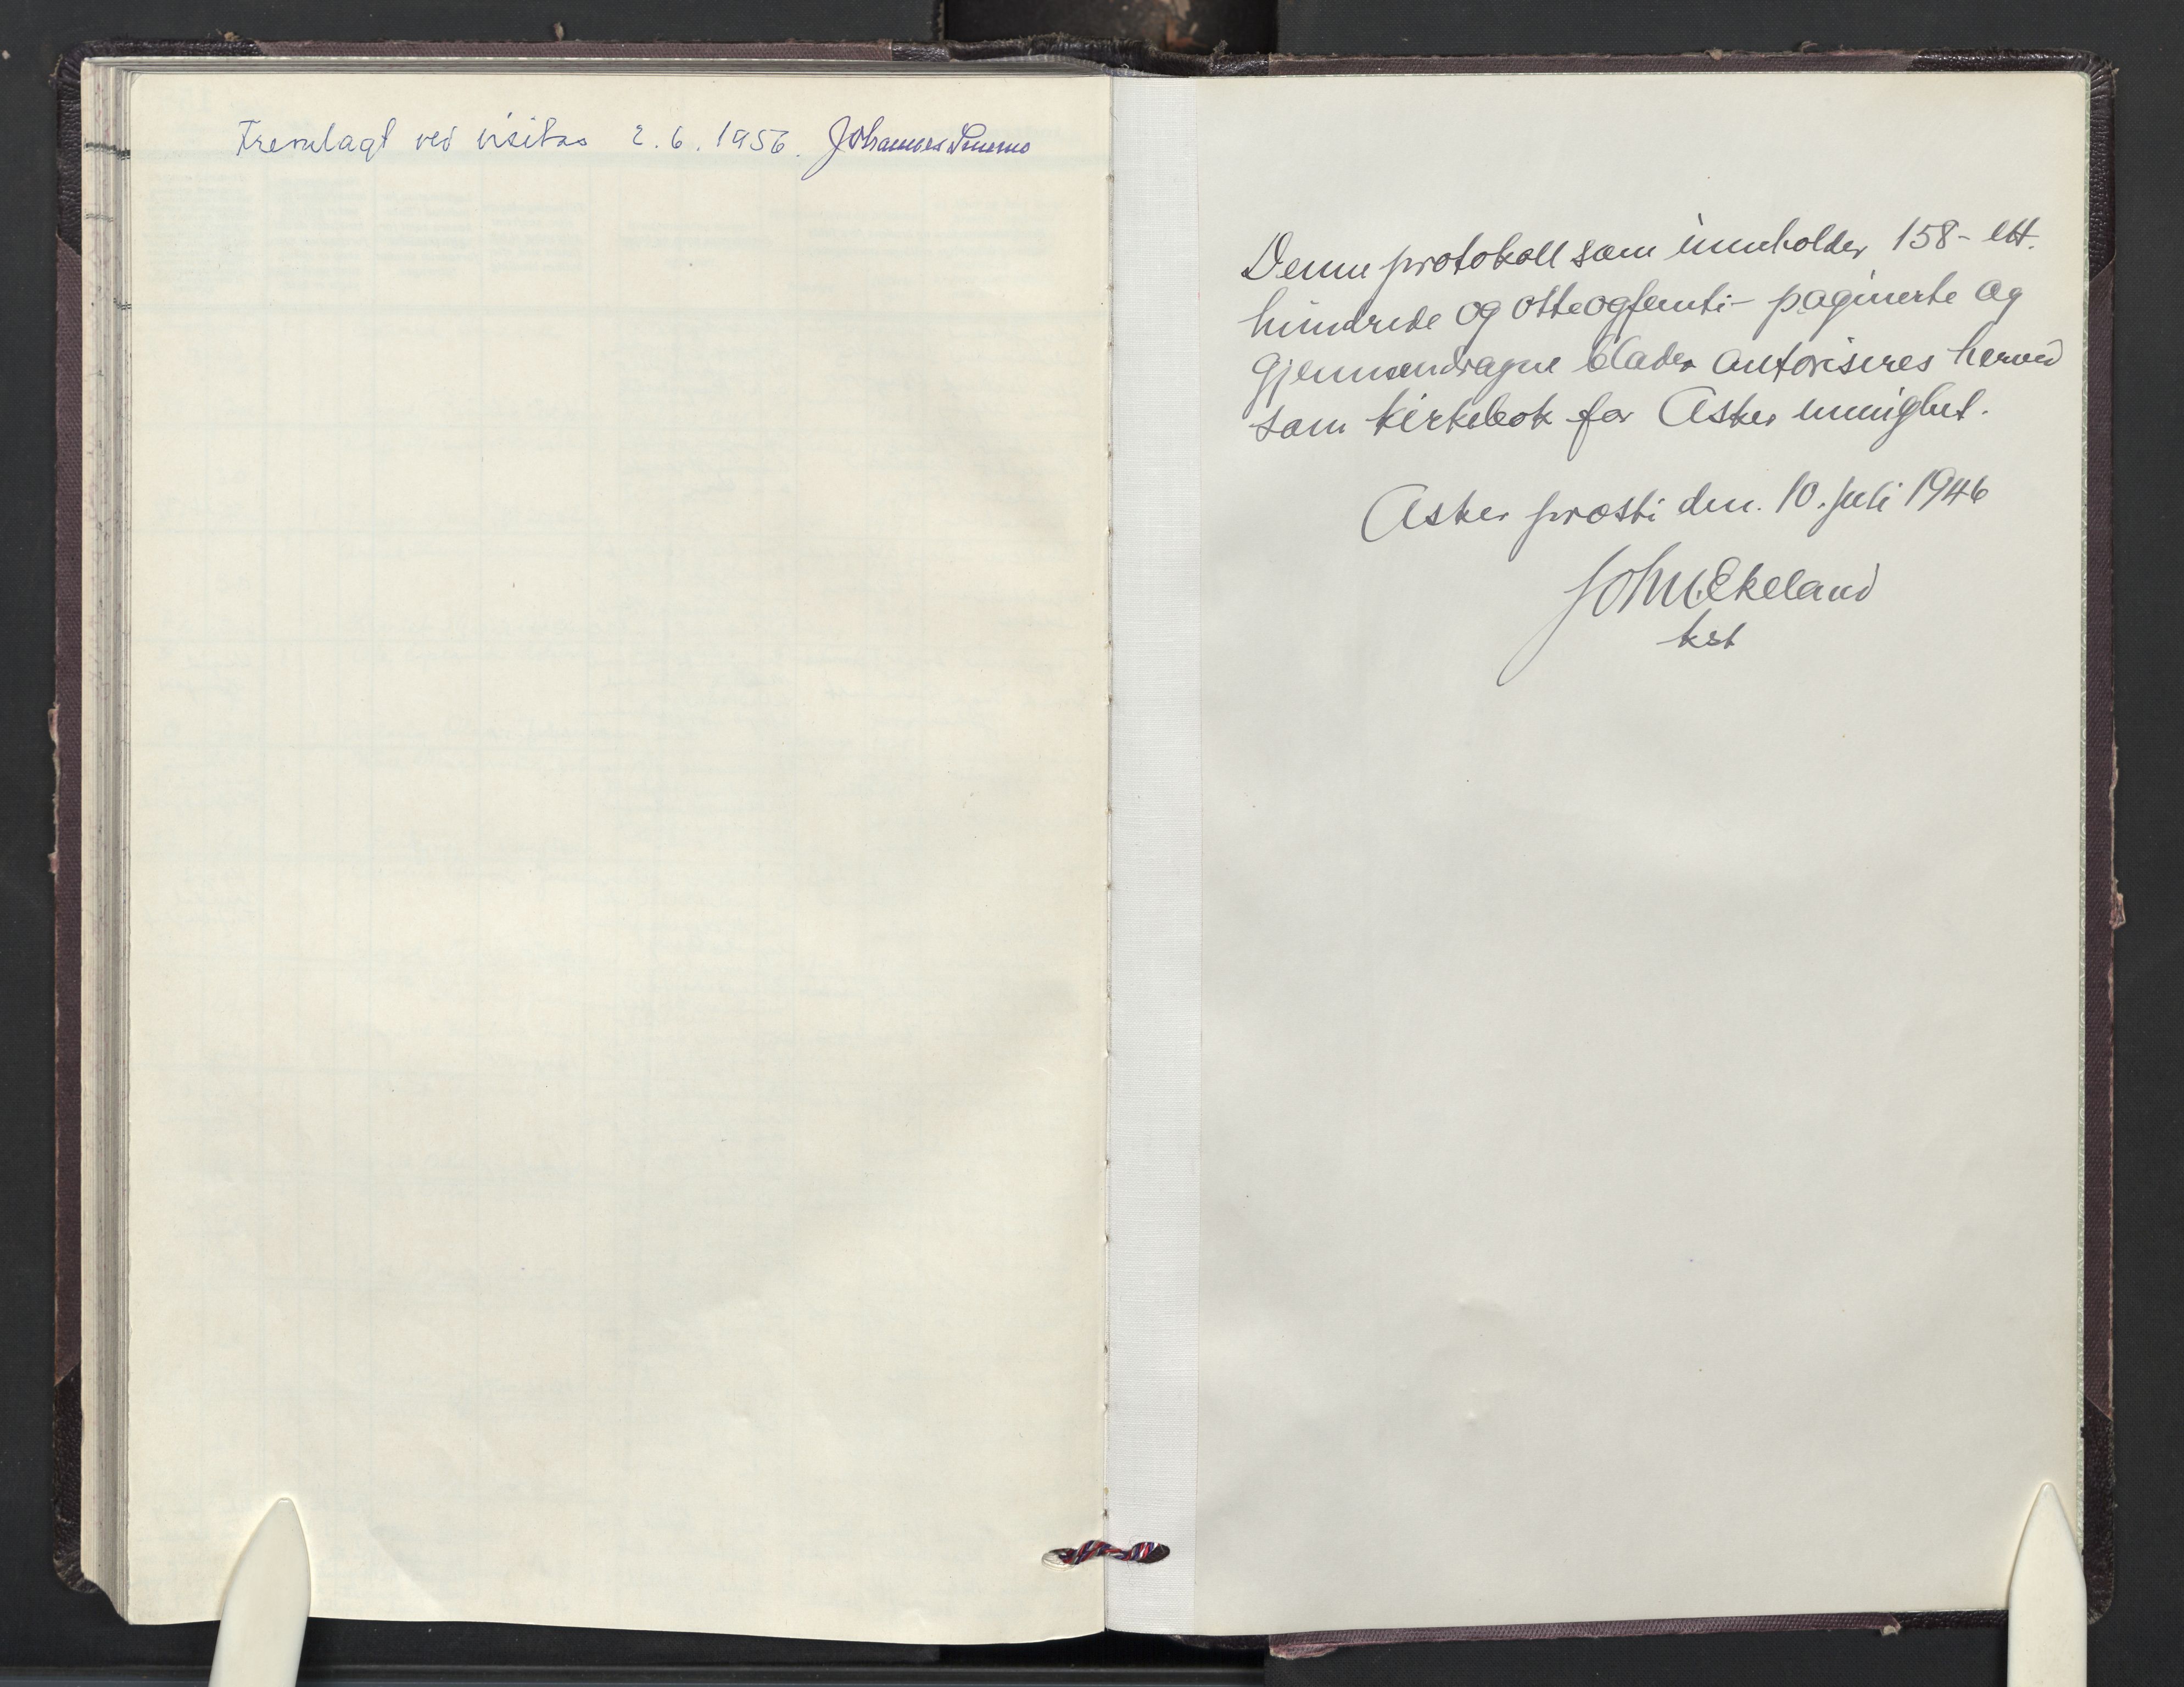 Fremlagt ved visitas 2.6.1956. Johannes Smemo
Denne protokoll som inneholder 158 - ett
hundrede og otteogfemti - paginerte og
gjennemdragne blader autoriseres herved
som kirkebok for Asker menighet.
Asker prosti den 10. juli 1946
Joh. Ekeland
kst